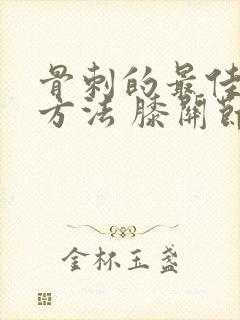 骨刺的最佳
方法 膝關節
金杯玉盞